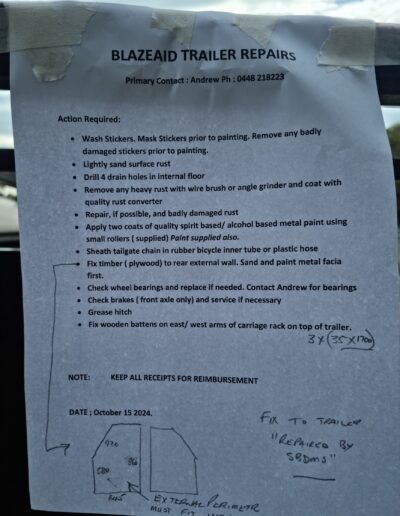 BLAZEAID TRAILER REPAIRS
Primary Contact : Andrew Ph : 0448 218223
Action Required:
• Wash Stickers. Mask Stickers prior to painting. Remove any badly
damaged stickers prior to painting.
• Lightly sand surface rust
• Drill 4 drain holes in internal floor
• Remove any heavy rust with wire brush or angle grinder and coat with
quality rust converter
• Repair, if possible, and badly damaged rust
• Apply two coats of quality spirit based/ alcohol based metal paint using
small rollers ( supplied) Paint supplied also.
• Sheath tailgate chain in rubber bicycle inner tube or plastic hose
• Fix timber ( plywood) to rear external wall. Sand and paint metal facia
first.
• Check wheel bearings and replace if needed. Contact Andrew for bearings
• Check brakes ( front axle only) and service if necessary
• Grease hitch
• Fix wooden battens on east/ west arms of carriage rack on top of trailer.
3 x (35 x 1700)
NOTE: KEEP ALL RECEIPTS FOR REIMBURSEMENT
DATE ; October 15 2024.
FIX TO TRAILER
"REPAIRED BY
SBDMS"
EXTERNAL PERIMETR
MUST FIT